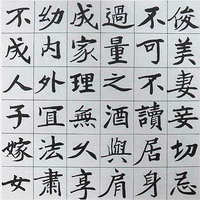 俊美妻妾切忌
不可不讀居身
過量之酒與肩
成家理無久享
幼內外冝法肅
不成人子嫁女